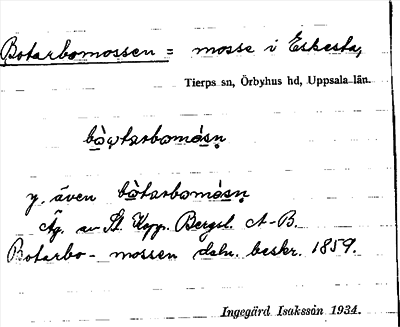 Botarbomossen = mosse i Eskesta,
Tierps sn, Örbyhus hd, Uppsala län.
bo̯tarbomåsn̥
y. även bòtarbomåsn̥
Äg. av St. Kopp. Bergsl. A-B.
Botarbo-mossen deln. beskr. 1859.
Ingegärd Isaksson 1934.